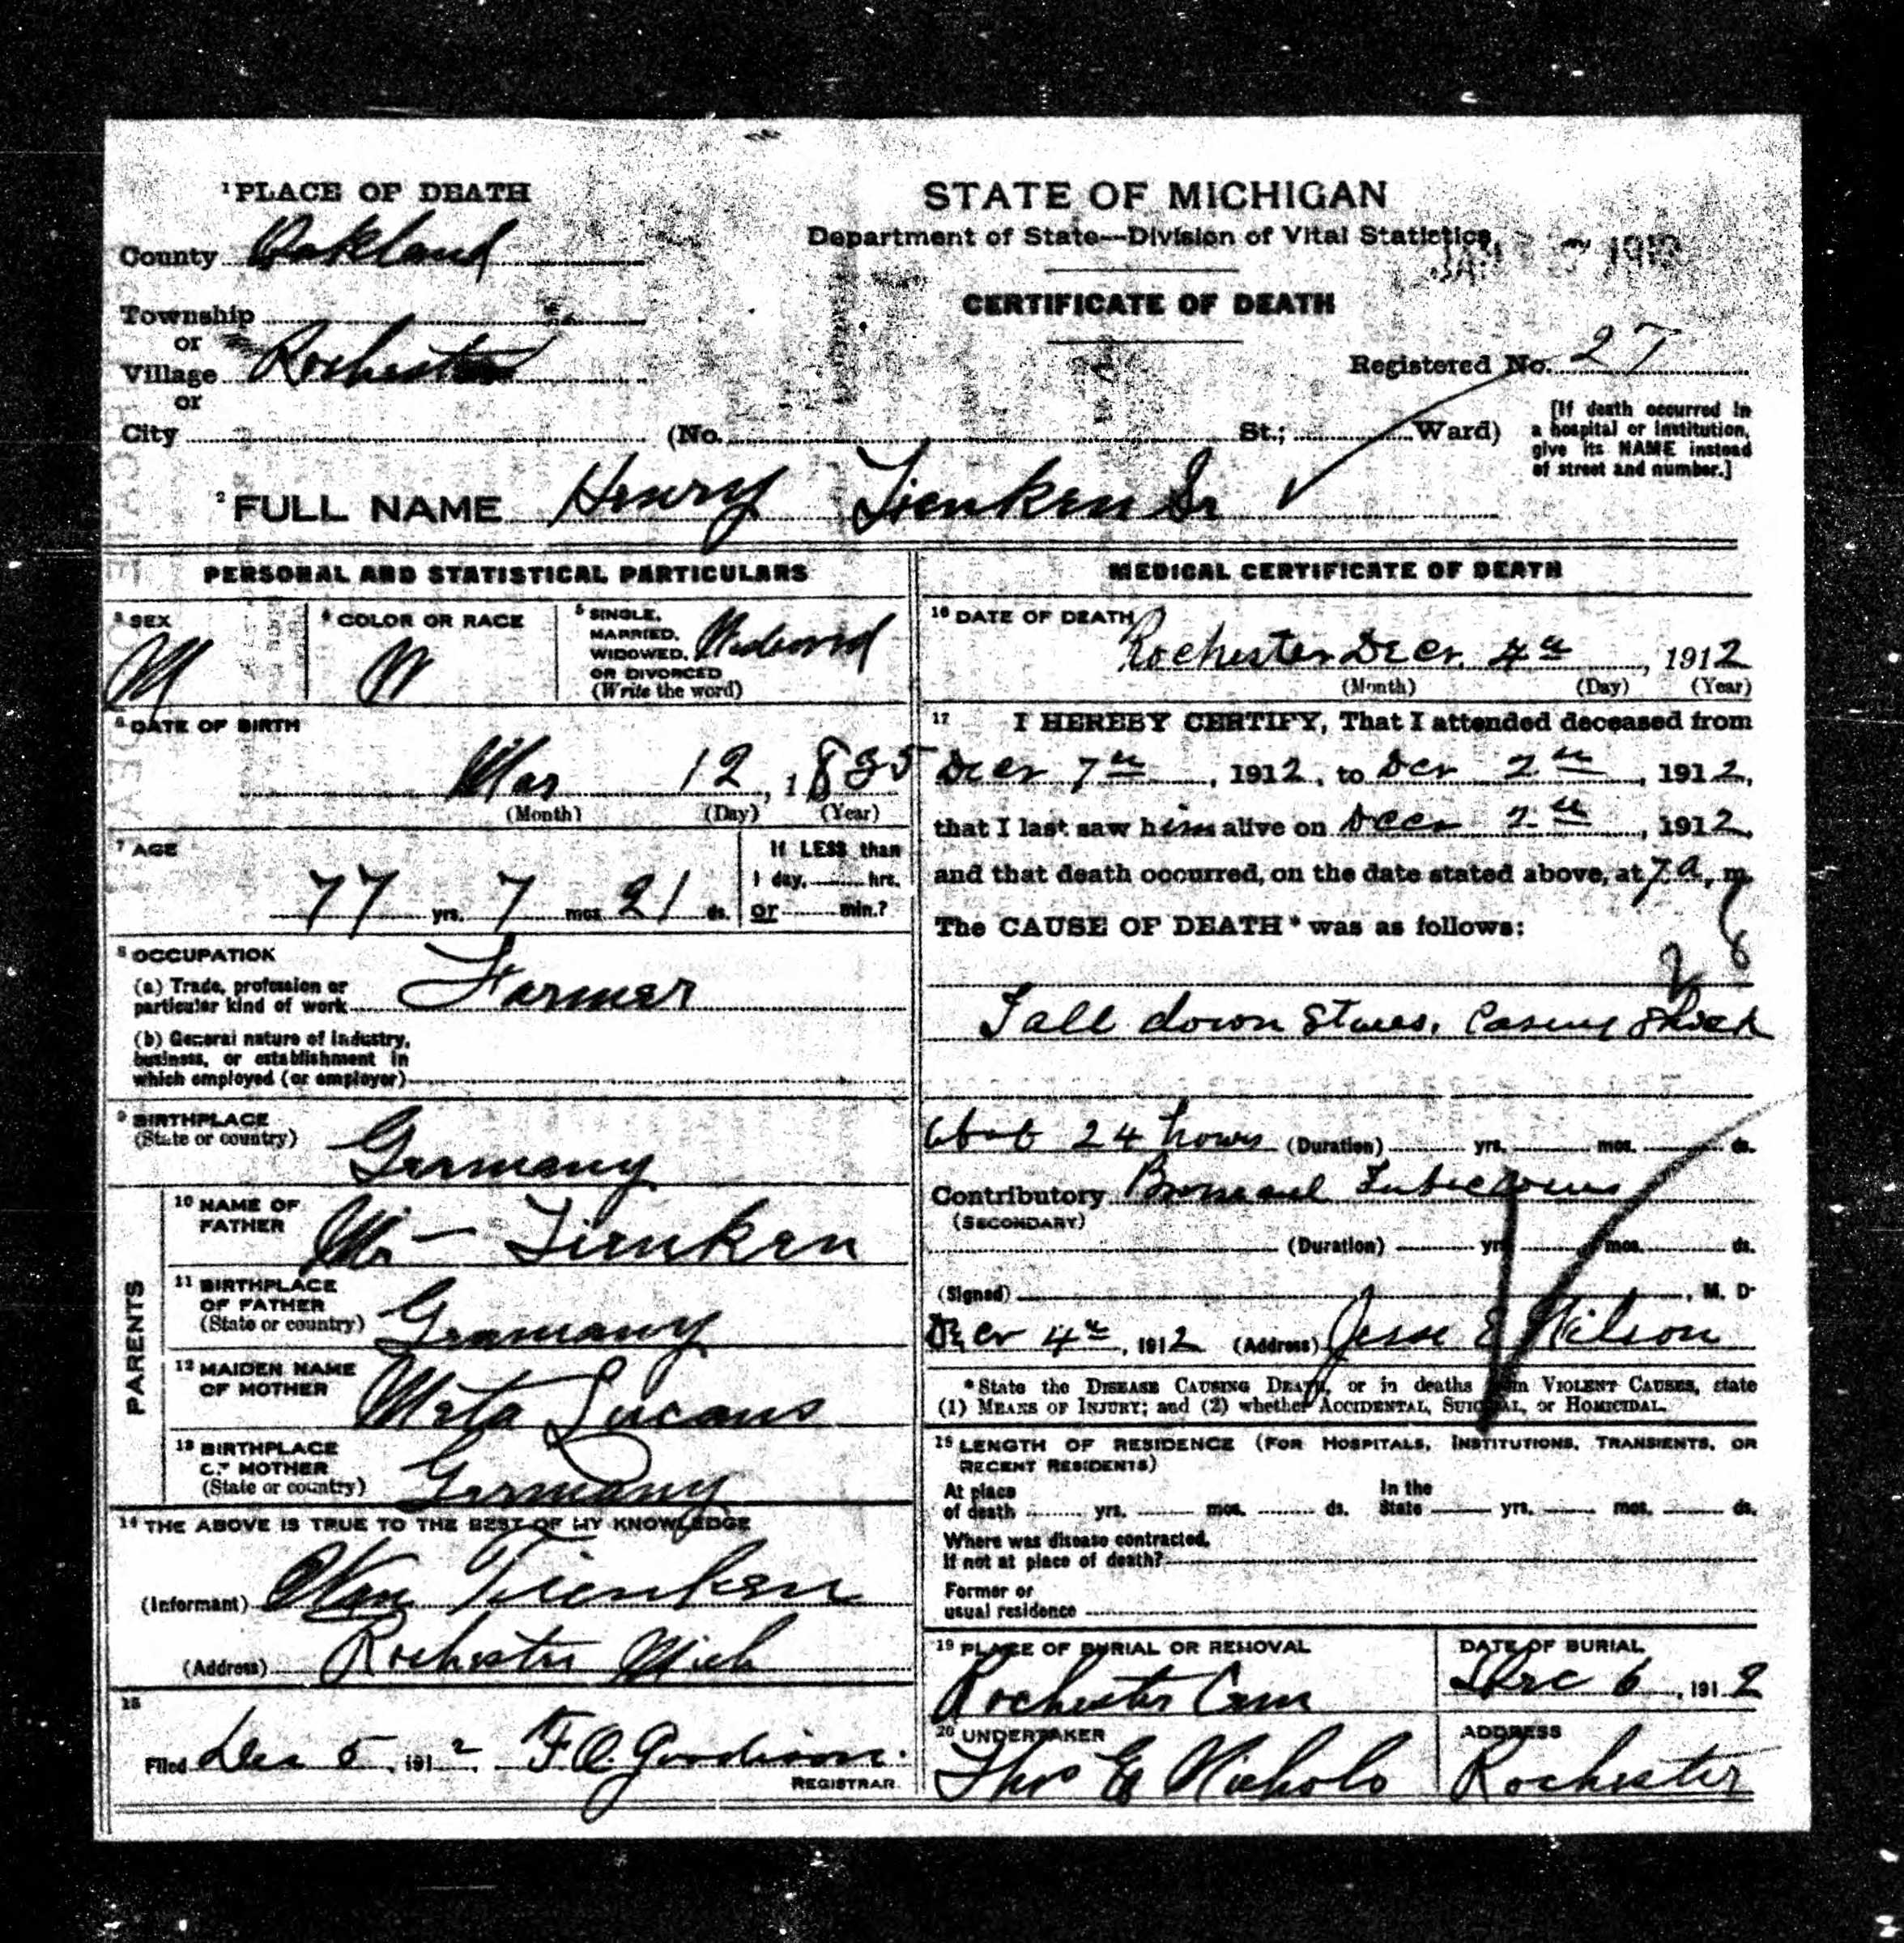 1 PLACE OF DEATH
County Oakland
Township
or
Village Rochester
or
City (No. St.; Ward)
STATE OF MICHIGAN
Department of State—Division of Vital Statistics
1913
CERTIFICATE OF DEATH
Registered No. 27
[If death occurred in
a hospital or institution,
give its NAME instead
of street and number.]
2 FULL NAME Henry Tienken Sr
PERSONAL AND STATISTICAL PARTICULARS
3 SEX
M
4 COLOR OR RACE
W
5 SINGLE,
MARRIED,
WIDOWED,
OR DIVORCED
(Write the word)
Widowed
6 DATE OF BIRTH
Mar 12, 1835
(Month) (Day) (Year)
7 AGE
77 yrs. 7 mos. 21 ds.
If LESS than
1 day, hrs.
or min.?
8 OCCUPATION
(a) Trade, profession or
particular kind of work Farmer
(b) General nature of industry,
business, or establishment in
which employed (or employer)
9 BIRTHPLACE
(State or country)
Germany
PARENTS
10 NAME OF
FATHER
Mr — Tienken
11 BIRTHPLACE
OF FATHER
(State or country)
Germany
12 MAIDEN NAME
OF MOTHER
Meta Lucans
13 BIRTHPLACE
OF MOTHER
(State or country)
Germany
14 THE ABOVE IS TRUE TO THE BEST OF MY KNOWLEDGE
(Informant) Wm Tienken
(Address) Rochester Mich
15
Filed Dec 5, 1912. F O. Goodison.
REGISTRAR
MEDICAL CERTIFICATE OF DEATH
16 DATE OF DEATH
Rochester Decr. 4th, 1912
(Month) (Day) (Year)
17 I HEREBY CERTIFY, That I attended deceased from
Decr 7th, 1912, to Decr 2nd, 1912,
that I last saw him alive on Decr 2nd, 1912,
and that death occurred, on the date stated above, at 7 a. m.
The CAUSE OF DEATH* was as follows:
Fall down Stares.
24 hours (Duration) yrs. mos. ds.
Contributory
(SECONDARY)
(Duration) yrs. mos. ds.
(Signed) , M. D.
Decr 4th, 1912 (Address) Jesse E Wilson
*State the DISEASE CAUSING DEATH, or in deaths from VIOLENT CAUSES, state
(1) MEANS OF INJURY; and (2) whether ACCIDENTAL, SUICIDAL, or HOMICIDAL.
18 LENGTH OF RESIDENCE (FOR HOSPITALS, INSTITUTIONS, TRANSIENTS, OR
RECENT RESIDENTS)
At place
of death yrs. mos. ds. In the
State yrs. mos. ds.
Where was disease contracted,
If not at place of death?
Former or
usual residence
19 PLACE OF BURIAL OR REMOVAL
Rochester Cem
DATE OF BURIAL
Dec 6, 1912
20 UNDERTAKER
Thos E Nichols
ADDRESS
Rochester